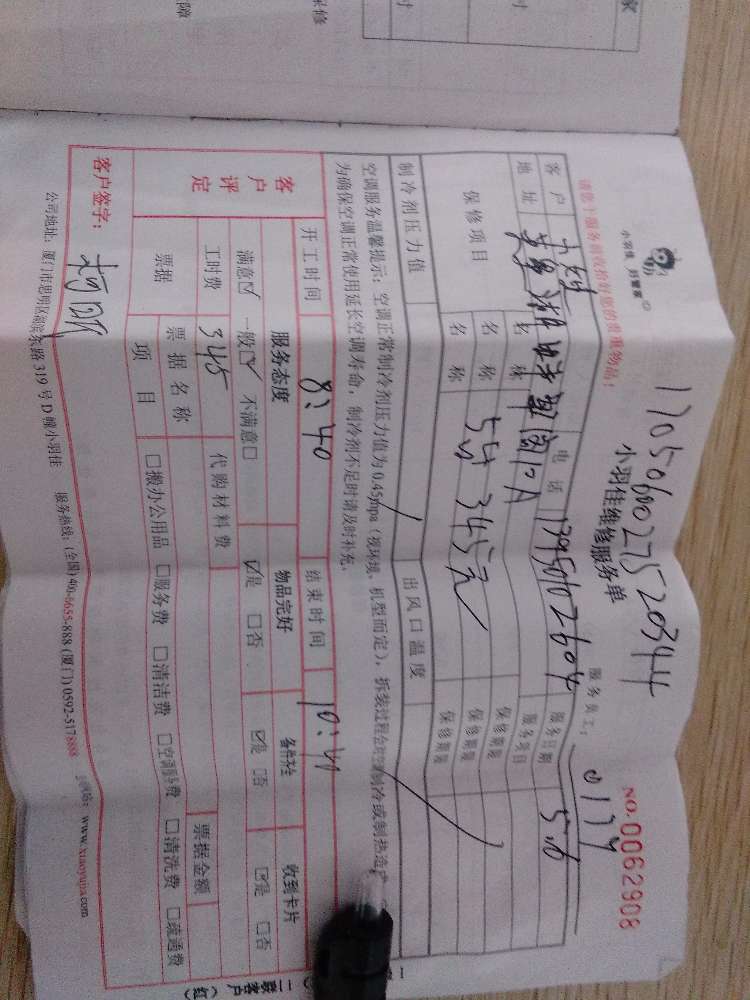 小羽佳 好管家
17050600275 20344
小羽佳维修服务单
NO.0062908
请您于服务前收拾好您的贵重物品!
服务员工:
客户
电话
服务日期 5.6
地址
服务类目
保修项目
名称
保修期限
名称 5匀 345元
保修期限
名称
保修期限
制冷剂压力值
出风口温度
空调服务温馨提示:空调正常制冷剂压力值为0.45mpa(视环境、机型而定),拆装过程会
为确保空调正常使用延长空调寿命,制冷剂不足时请及时补充。
开工时间 8:40 结束时间 10:40
客户评定
服务态度 物品完好 备件齐全 收到卡片
满意☑ 一般☑ 不满意□ ☑是 □否 ☑是 □否 ☑是 □否
工时费 345 代购材料费
票据 票据名称 票据金额
项目 □搬办公用品 □服务费 □清洁费 □空调移机费 □清洗费 □疏通费
客户签字:
公司地址:厦门市思明区 东路319号D幢小羽佳 服务热线:(全国)400-6655-888 (厦门)0592-5178888 www.xiaoyujia.com
二联客户(红)